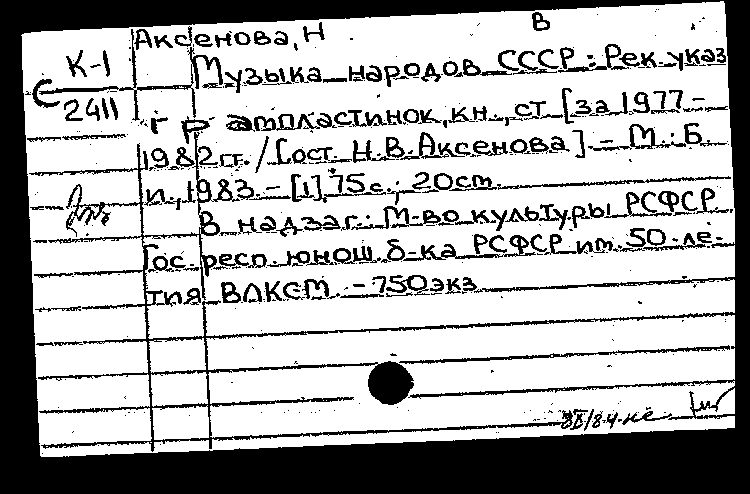 В
Аксенова, Н
К-1
2411
Музыка народов СССР: Рек. указ
грампластинок, кн., ст [за 1977-
1982 гг. / Сост. Н.В. Аксенова]. - М.: Б.
и., 1983. - [1], 75 с.; 20 cm
В надзаг.: М-во культуры РСФСР.
Гос. респ. юнош. б-ка РСФСР им. 50-ле-
тия ВЛКСМ. - 750 экз